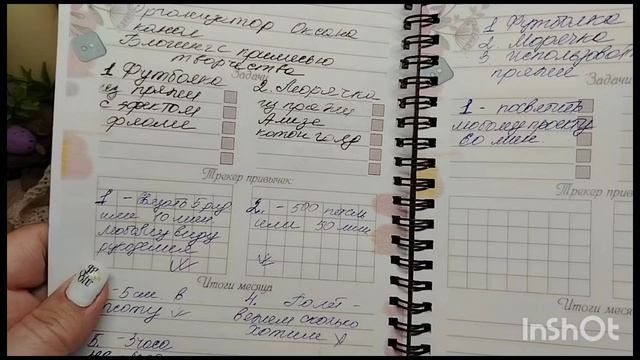 Организатор Оксана
канал
Блогинг с примесью
творчества
Задачи
1. Футболка
из пряжи
с эффектом
фламе
2. Морячка
из пряжи
Ализе
котон голд
Трекер привычек:
1 - Вязать 5 ряд
или 10 мин
любому виду
рукоделия
2. - 500 петель
или 50 мин
Итоги месяца
- 5 см. в
высоту
4. Полёт -
вяжем сколько
хотим
5. - 3 часа
1 Футболка
2 Морячка
3 использовать
пряжи
Задачи
1 - посвятить
любому проекту
60 мин.
Трекер привы
Итоги
InShOt